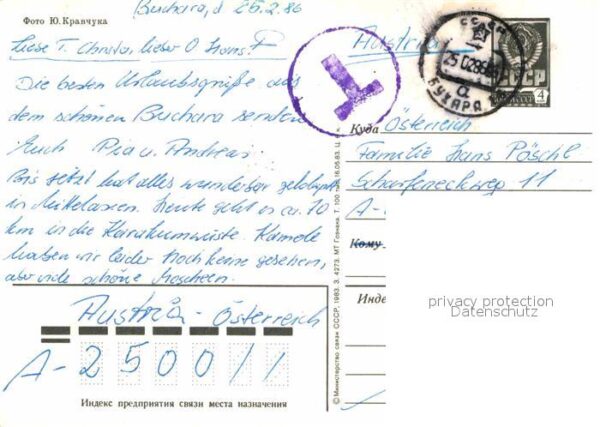 Фото Ю. Кравчука
Buchara, d 25.2.86
Liebe T. Christa, lieber O. Hans!
Die besten Urlaubsgrüße aus
dem schönen Buchara senden
Euch Pia u. Andreas
Bis jetzt hat alles wunderbar geklappt
in Mittelasien. Heute geht es ca. 70
km in die Karakumwüste. Kamele
haben wir leider noch keine gesehen,
aber viele schöne Moscheen.
Austria - Österreich
A-2500//
Индекс предприятия связи места назначения
© Министерство связи СССР, 1983. З. 4273. МТ Гознака. Т. 100 16.05.83. Ц.
T
Austria
25 0286
БУХАРА
а
СССР
4
Куда Österreich
Familie Hans Pöschl
Scharfeneckweg 11
A-
Кому
Инде
privacy protection
Datenschutz